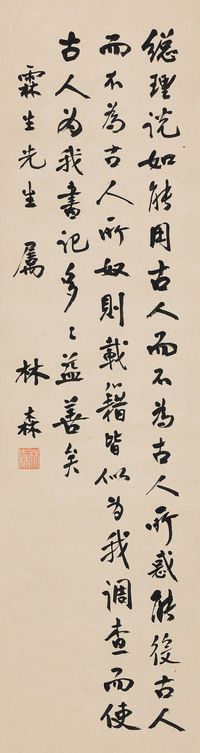 總理說如能用古人而不為古人所惑能役古人
而不為古人所奴則載籍皆似為我調查而使
古人為我書記多多益善矣
霖生先生屬
林森